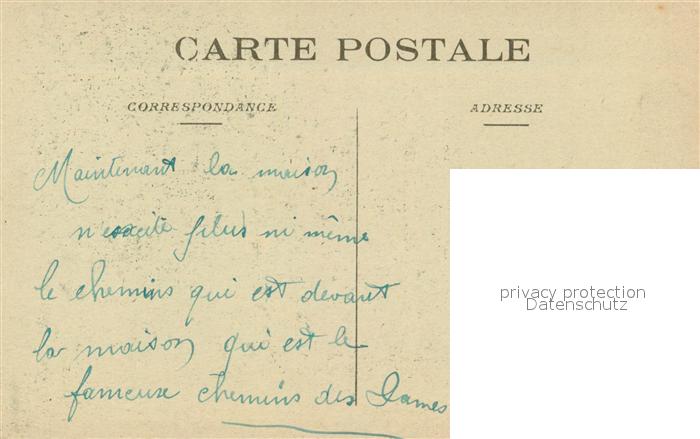 CARTE POSTALE
CORRESPONDANCE
ADRESSE
Maintenant la maison
n'exacite plus ni même
le chemins qui est devant
la maison qui est le
fameux chemins des Dames
privacy protection
Datenschutz